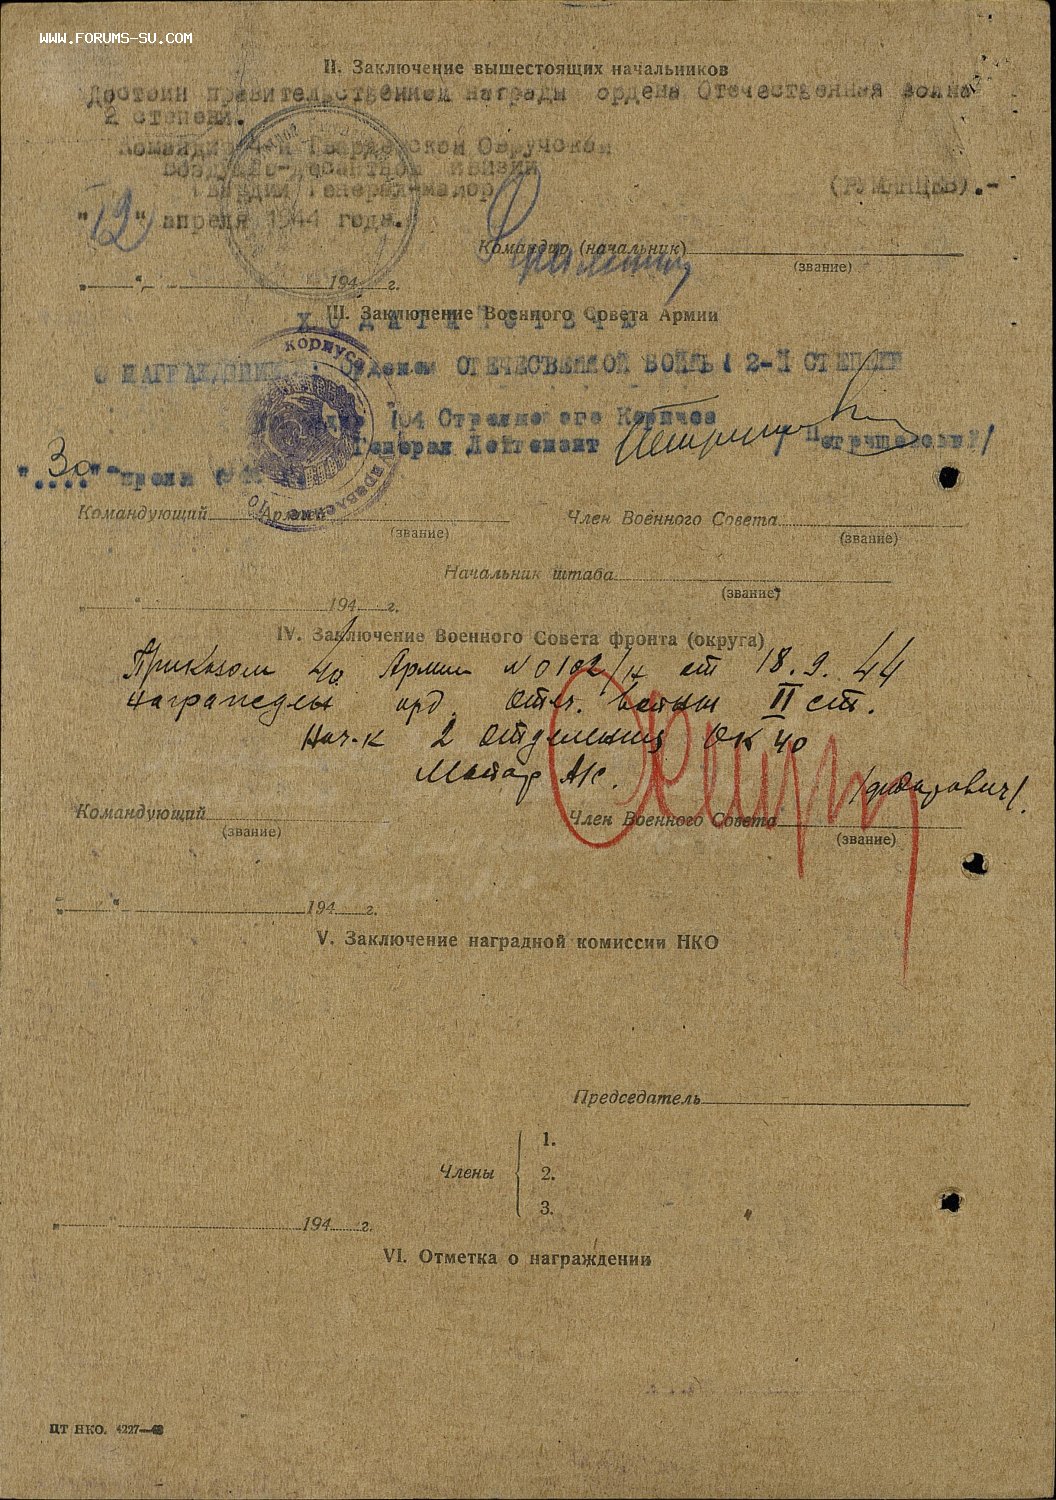 WWW.FORUMS-SU.COM
II. Заключение вышестоящих начальников
Достоин правительственной награды ордена Отечественная война
2 степени.
Командир 4-й Гвардейской Овручской
воздушно-десантной дивизии
Гвардии Генерал-майор (РУМЯНЦЕВ).-
"12" апреля 1944 года.
Командир (начальник)
(звание)
" " 194 г.
III. Заключение Военного Совета Армии
ХОДАТАЙСТВУЮ
корпуса
О НАГРАЖДЕНИИ Орденом ОТЕЧЕСТВЕННОЙ ВОЙНЫ 2-Й СТЕПЕНИ
Командир 104 Стрелкового Корпуса
Генерал Лейтенант /Петрушевский/
"30"
управление
Командующий Армией
(звание)
Член Военного Совета
(звание)
Начальник штаба
(звание)
" " 194 г.
IV. Заключение Военного Совета фронта (округа)
Приказом 40 Армии № 0102/н от 18.9.44
награжден орд. Отеч. войны II ст.
Нач-к 2 отделения ОК 40
Майор А/с.
Командующий
(звание)
Член Военного Совета
(звание)
" " 194 г.
V. Заключение наградной комиссии НКО
Председатель
Члены
1.
2.
3.
" " 194 г.
VI. Отметка о награждении
ЦТ НКО. 4227—43